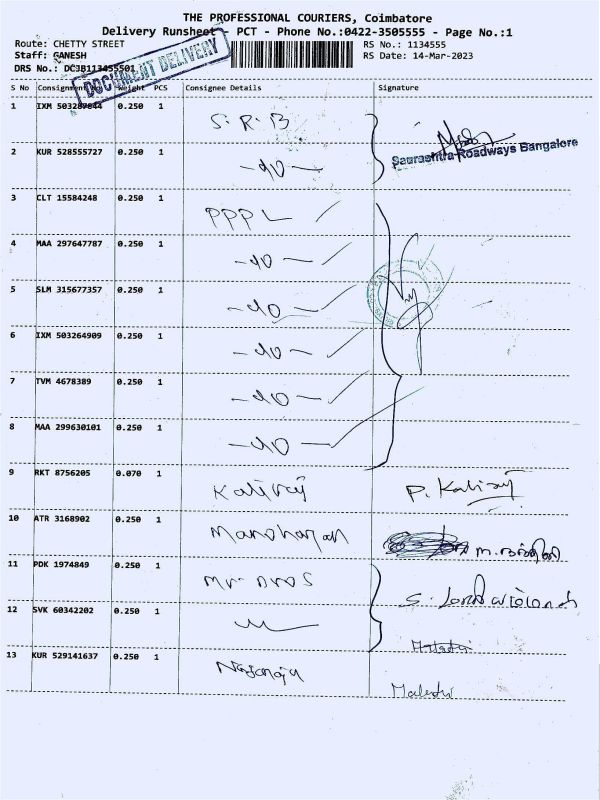 THE PROFESSIONAL COURIERS, Coimbatore
Delivery Runsheet - PCT - Phone No.:0422-3505555 - Page No.:1
Route: CHETTY STREET
RS No.: 1134555
Staff: GANESH
RS Date: 14-Mar-2023
DRS No.: DCJB113455501
DOCUMENT DELIVERY
S No Consignment No Weight PCS Consignee Details Signature
1 IXM 503287044 0.250 1 S. R. B
Saurashtra Roadways Bangalore
2 KUR 528555727 0.250 1
3 CLT 15584248 0.250 1 PPPL
4 MAA 297647787 0.250 1
5 SLM 315677357 0.250 1
6 IXM 503264909 0.250 1
7 TVM 4678389 0.250 1
8 MAA 299630101 0.250 1
9 RKT 8756205 0.070 1 Kaliraj P. Kaliraj
10 ATR 3168902 0.250 1 Manoharan
11 PDK 1974849 0.250 1
12 SVK 60342202 0.250 1
13 KUR 529141637 0.250 1